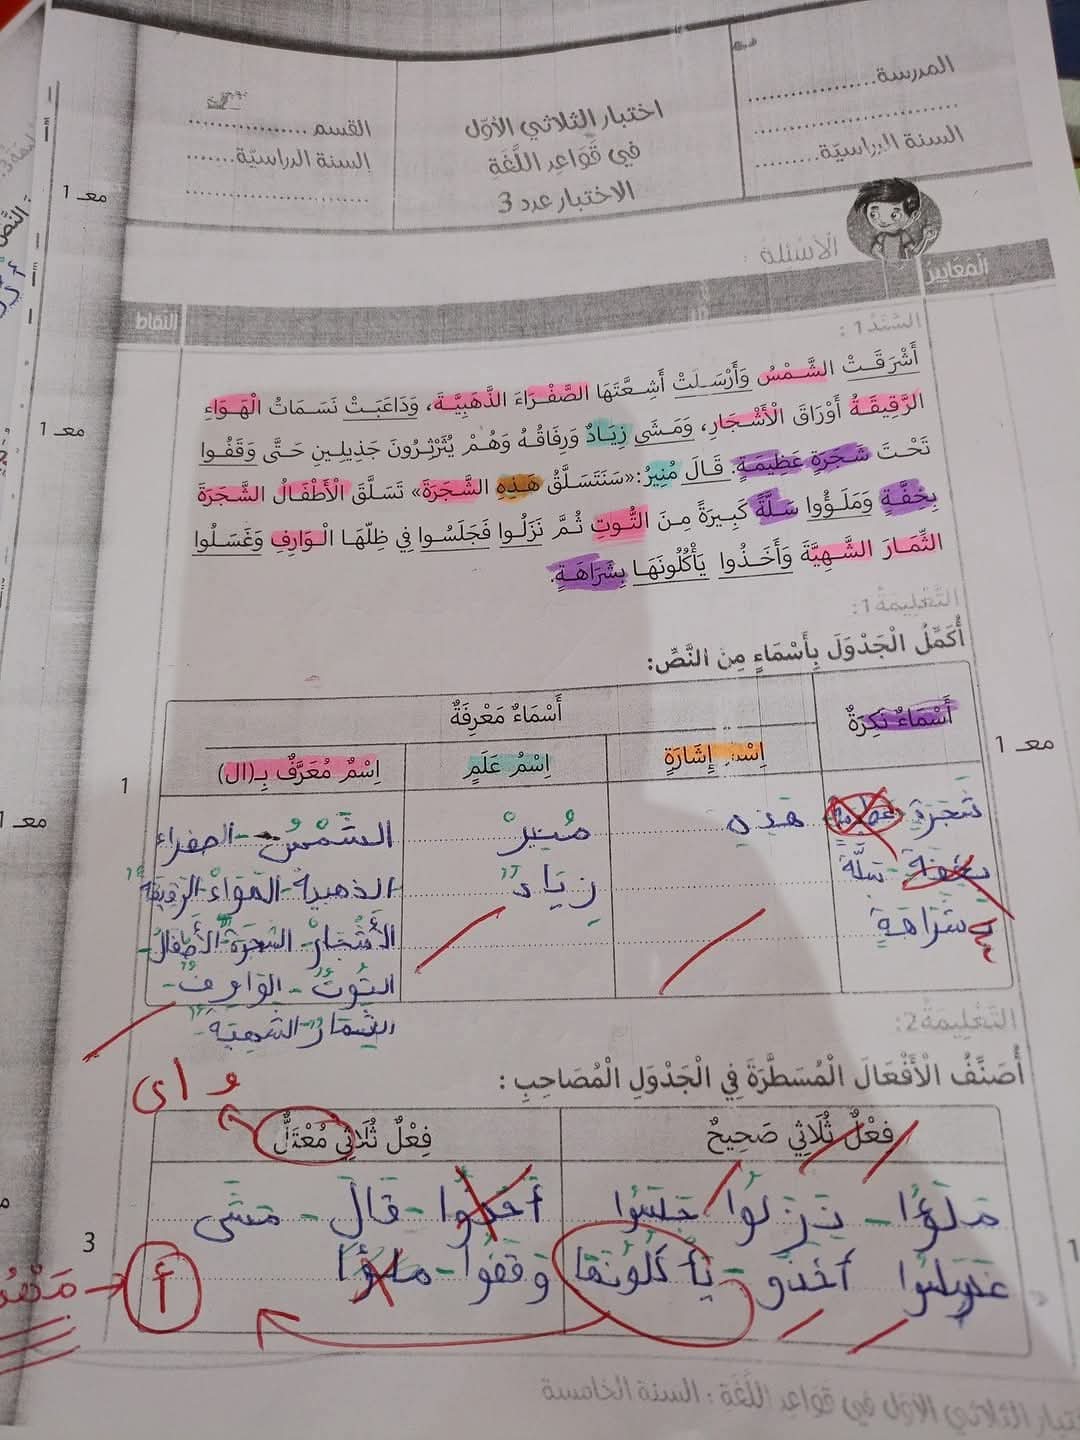 المدرسة
اختبار الثلاثي الأوّل
القسم
في قَوَاعِدِ اللُّغَة
السنة الدراسيّة
السنة الدراسيّة
الاختبار عدد 3
معـ 1
الأسئلة :
المعايير
النقاط
السّند 1 :
أَشْرَقَتْ الشَّمْسُ وَأَرْسَلَتْ أَشِعَّتَهَا الصَّفْرَاءَ الذَّهَبِيَّةَ، وَدَاعَبَتْ نَسَمَاتُ الْهَوَاءِ
الرَّقِيقَةُ أَوْرَاقَ الْأَشْجَارِ، وَمَشَى زِيَادٌ وَرِفَاقُهُ وَهُمْ يُثَرْثِرُونَ جَذِيلِينِ حَتَّى وَقَفُوا
تَحْتَ شَجَرَةٍ عَظِيمَةٍ. قَالَ مُنِيرٌ: «سَنَتَسَلَّقُ هَذِهِ الشَّجَرَةَ» تَسَلَّقَ الْأَطْفَالُ الشَّجَرَةَ
بِخِفَّةٍ وَمَلَؤُوا سَلَّةً كَبِيرَةً مِنَ التُّوتِ ثُمَّ نَزَلُوا فَجَلَسُوا فِي ظِلِّهَا الْوَارِفِ وَغَسَلُوا
الثِّمَارَ الشَّهِيَّةَ وَأَخَذُوا يَأْكُلُونَهَا بِشَرَاهَةٍ.
معـ 1
التَّعْلِيمَة 1:
أُكَمِّلُ الْجَدْوَلَ بِأَسْمَاءٍ مِنَ النَّصِّ:
أَسْمَاءٌ نَكِرَةٌ
أَسْمَاءٌ مَعْرِفَةٌ
اِسْمُ إِشَارَةٍ
اِسْمُ عَلَمٍ
اِسْمٌ مُعَرَّفٌ بِـ(ال)
معـ 1
1
شجرة عظيمة
هذه
منير
الشمس - الصفراء
بخفة - سلّة
زياد
الذهبية - الهواء - الرقيقة
بشراهة
الأشجار - الشجرة - الأطفال -
التوت - الوارف -
الثمار - الشهية -
معـ
التَّعْلِيمَة 2:
أُصَنِّفُ الْأَفْعَالَ الْمُسَطَّرَةَ فِي الْجَدْوَلِ الْمُصَاحِبِ :
و ا ى
فِعْلٌ ثُلَاثِي صَحِيحٌ
فِعْلٌ ثُلَاثِي مُعْتَلٌّ
ملؤوا - نزلوا جلسوا
أخذوا - قال - مشى
غسلوا أخذو - يأكلونها
وقفوا - ملؤوا
3
أ
الثلاثي الأوّل في قواعد اللّغة : السنة الخامسة